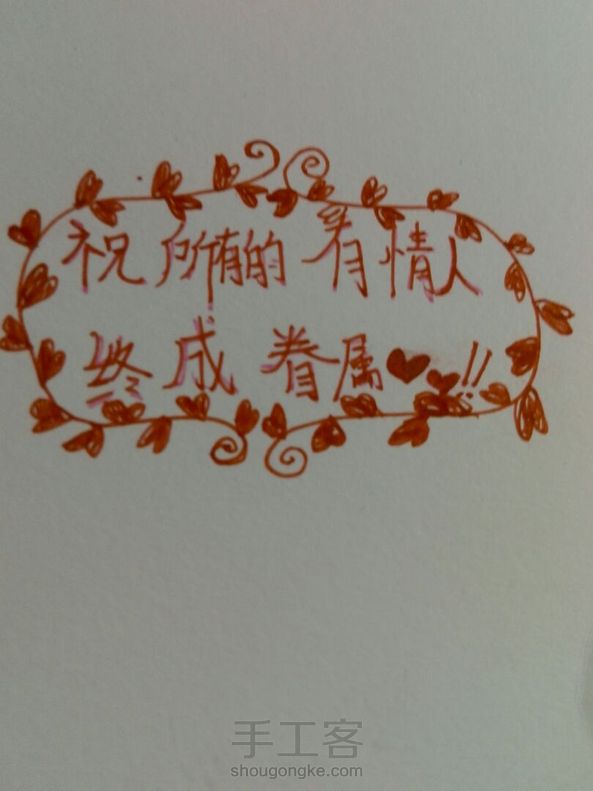 祝所有的有情人
终成眷属❤❤!!
手工客
shougongke.com